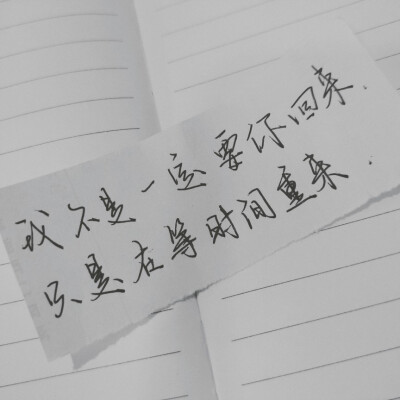 我不是一定要你回来.
只是在等时间重来.